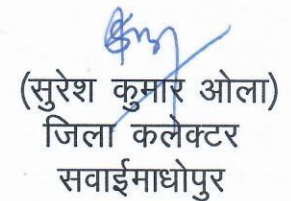 (सुरेश कुमार ओला)
जिला कलेक्टर
सवाईमाधोपुर